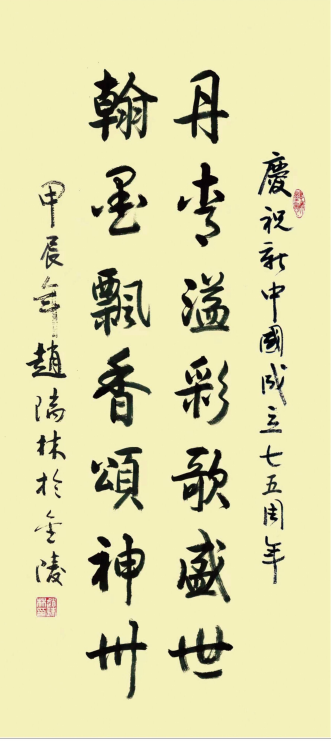 慶祝新中國成立七五周年
丹青溢彩歌盛世
翰墨飄香頌神州
甲辰年趙林於金陵